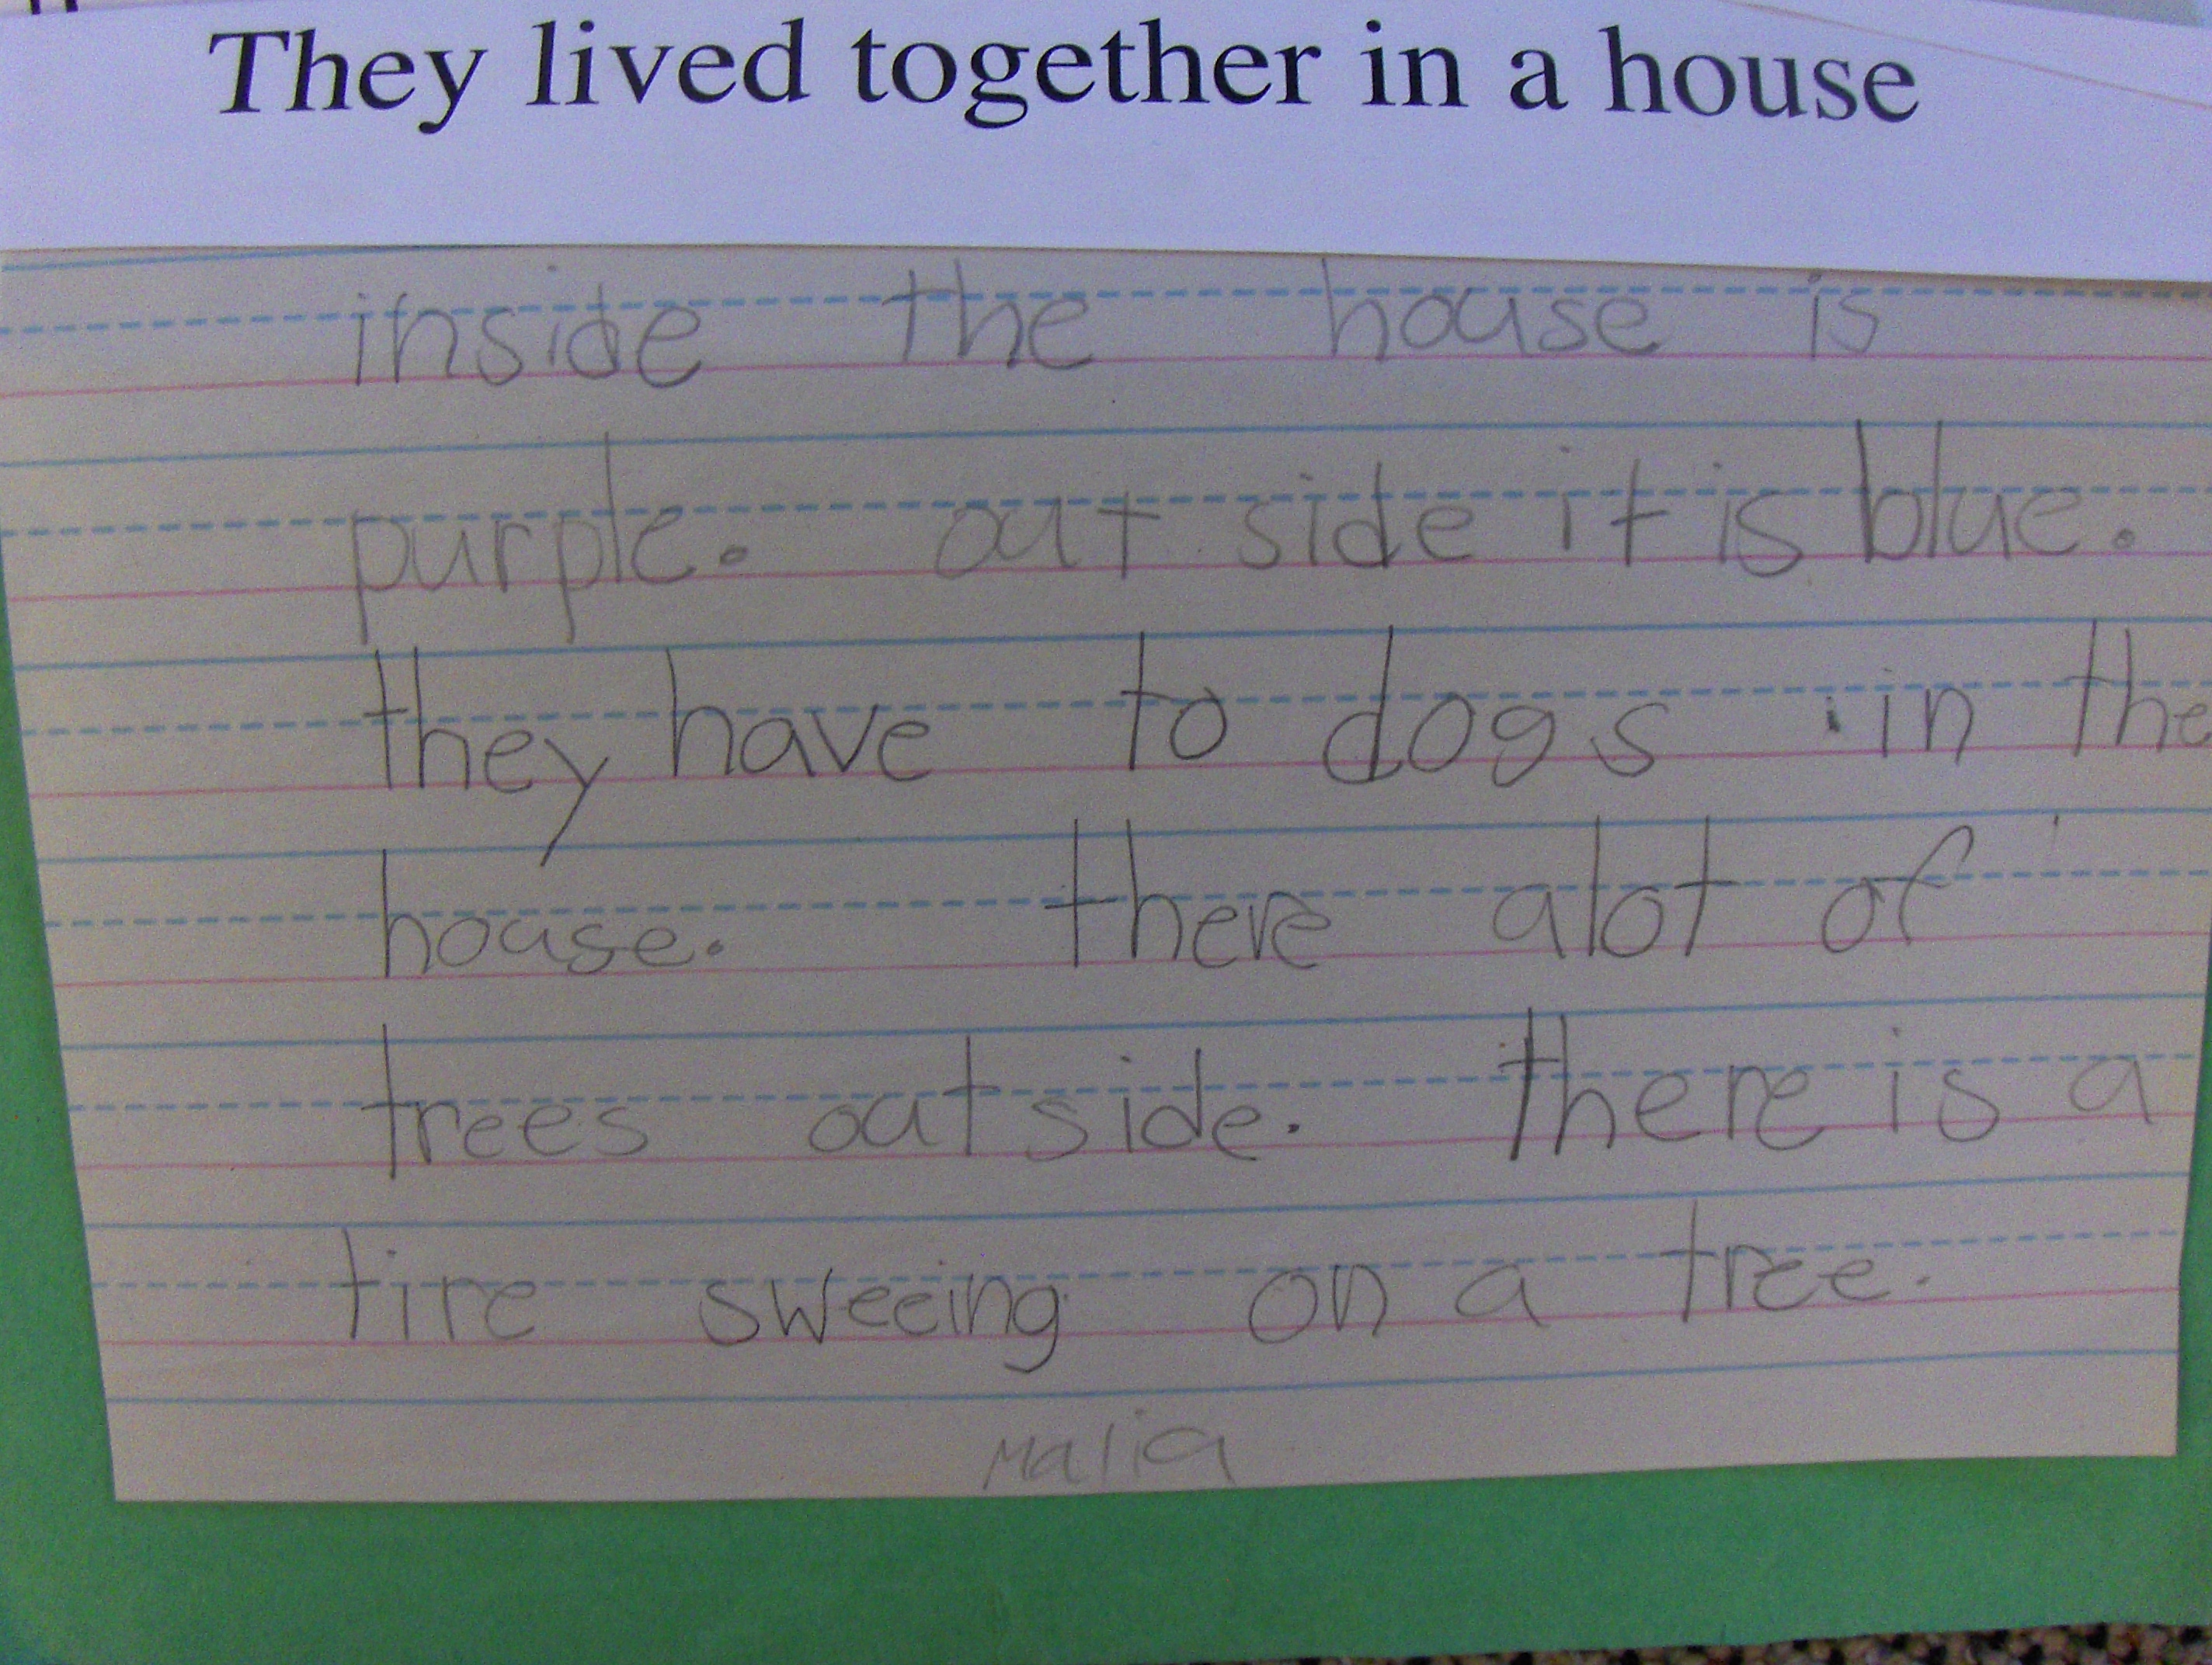 They lived together in a house
inside the house is
purple. out side it is blue.
they have to dogs in the
house. there alot of
trees out side. there is a
tire sweeing on a tree.
Malia